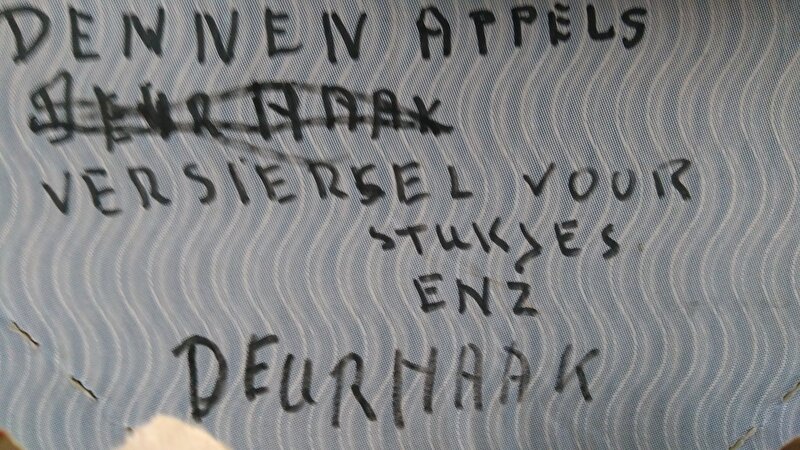 DENNEN APPELS
DEURHAAK
VERSIERSEL VOUR
STUKJES
ENZ
DEURHAAK